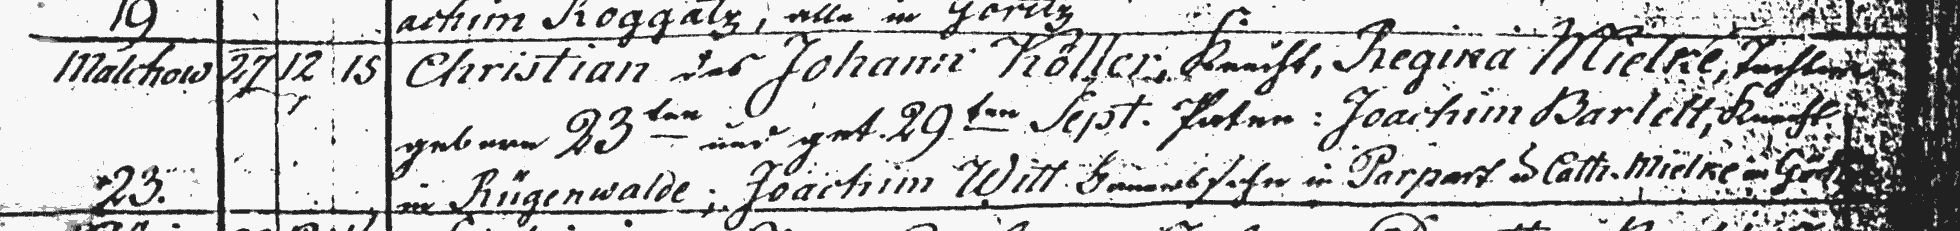 19 achim Roggatz, alle in Göritz
Malchow 27 12 15 Christian des Johann Köller, Knecht, Regina Mielke, Tochter
geboren 23ten und get. 29ten Sept. Paten: Joachim Barlett, Knecht
23. in Rügenwalde; Joachim Witt Bauerssohn in Parpart u Cath. Mielke in